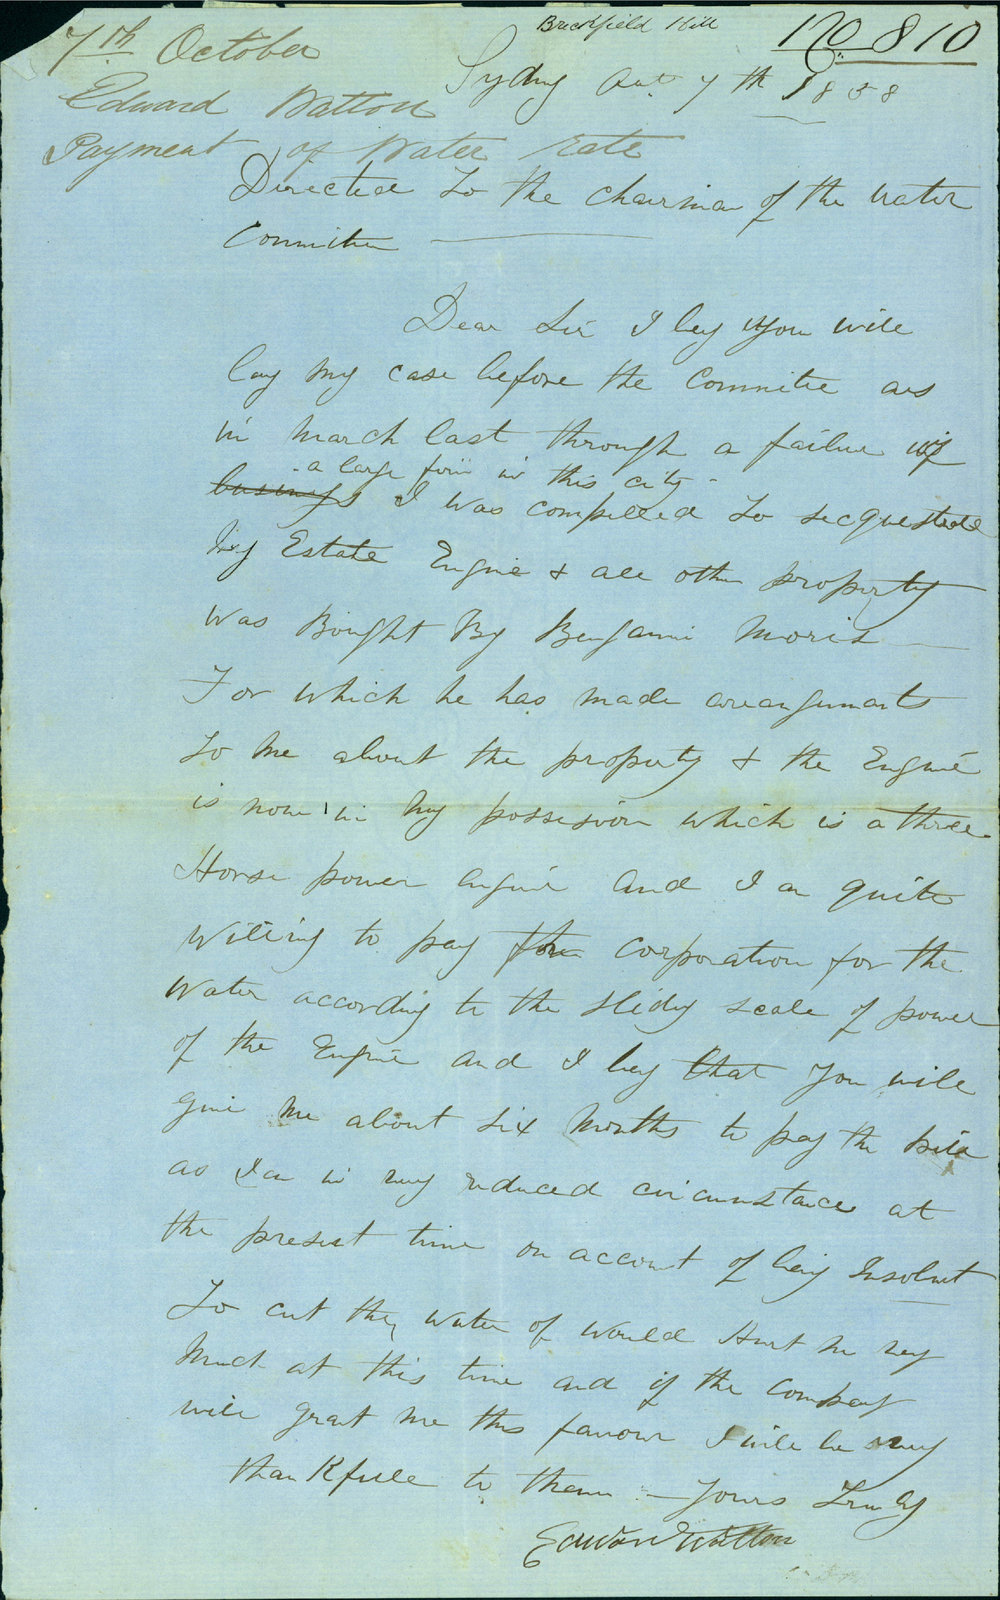 Brickfield Hill
No 810
7th October
Sydny Oct 7th 1858
Edward Watton
Payment of Water rate
Directed to the chairman of the water
Committee
Dear Sir I beg you will
lay my case before the Committe as
in march last through a failure of
- a large firm in this city -
businefs I was compelled to secquestrate
My Estate Engine & all other property
was Bought By Benjamin Moris
For which he has made arrangements
to me about the property & the Engine
is now in my possesion which is a three
Horse power engine and I am quite
Willing to pay the corporation for the
Water according to the slidig scale of power
of the Engine and I beg that you will
give me about six months to pay the bill
as I am in very reduced circumstance at
the present time on account of being Insolvent
To cut the water of would Hurt me very
Much at this time and if the company
will grant me this favour I will be very
thankfull to them — Yours Truly
Edward Watton